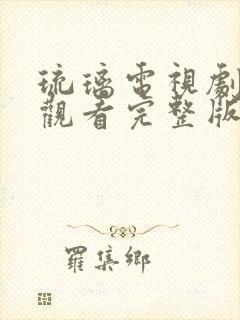 琉璃電視劇
觀看完整版
羅集鄉